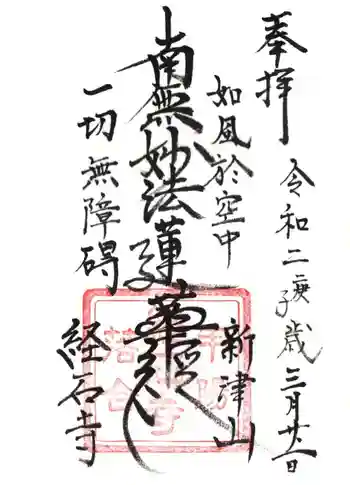 奉拝
令和二庚子歳三月廿一日
如風於空中
南無妙法蓮華経
一切無障碍
新津山
経石寺